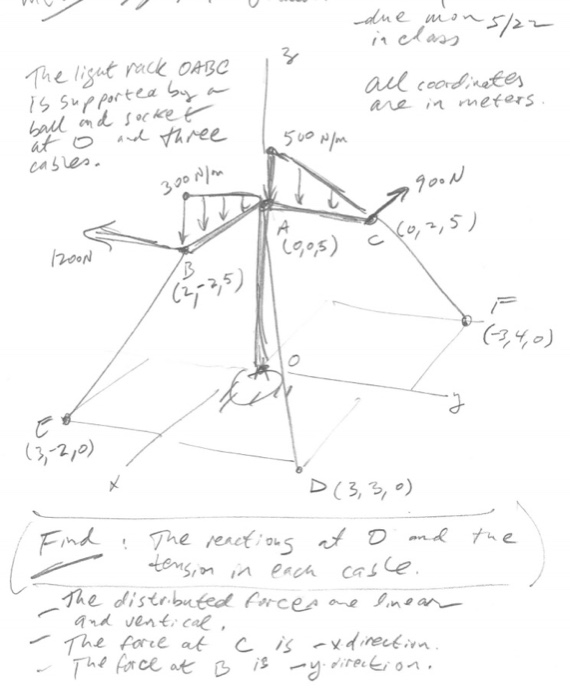 due mon 5/22
in class
The light rack OABC
is supported by a
ball and socket
at O and three
cables.
all coordinates
are in meters.
z
500 N/m
300 N/m
900N
A
(0,0,5)
C (0,2,5)
1200N
B
(2,-2,5)
F
(-3,4,0)
O
y
E
(3,-2,0)
x
D (3,3,0)
Find: The reactions at O and the
tension in each cable.
- The distributed forces are linear
and vertical.
- The force at C is -x direction.
- The force at B is -y direction.